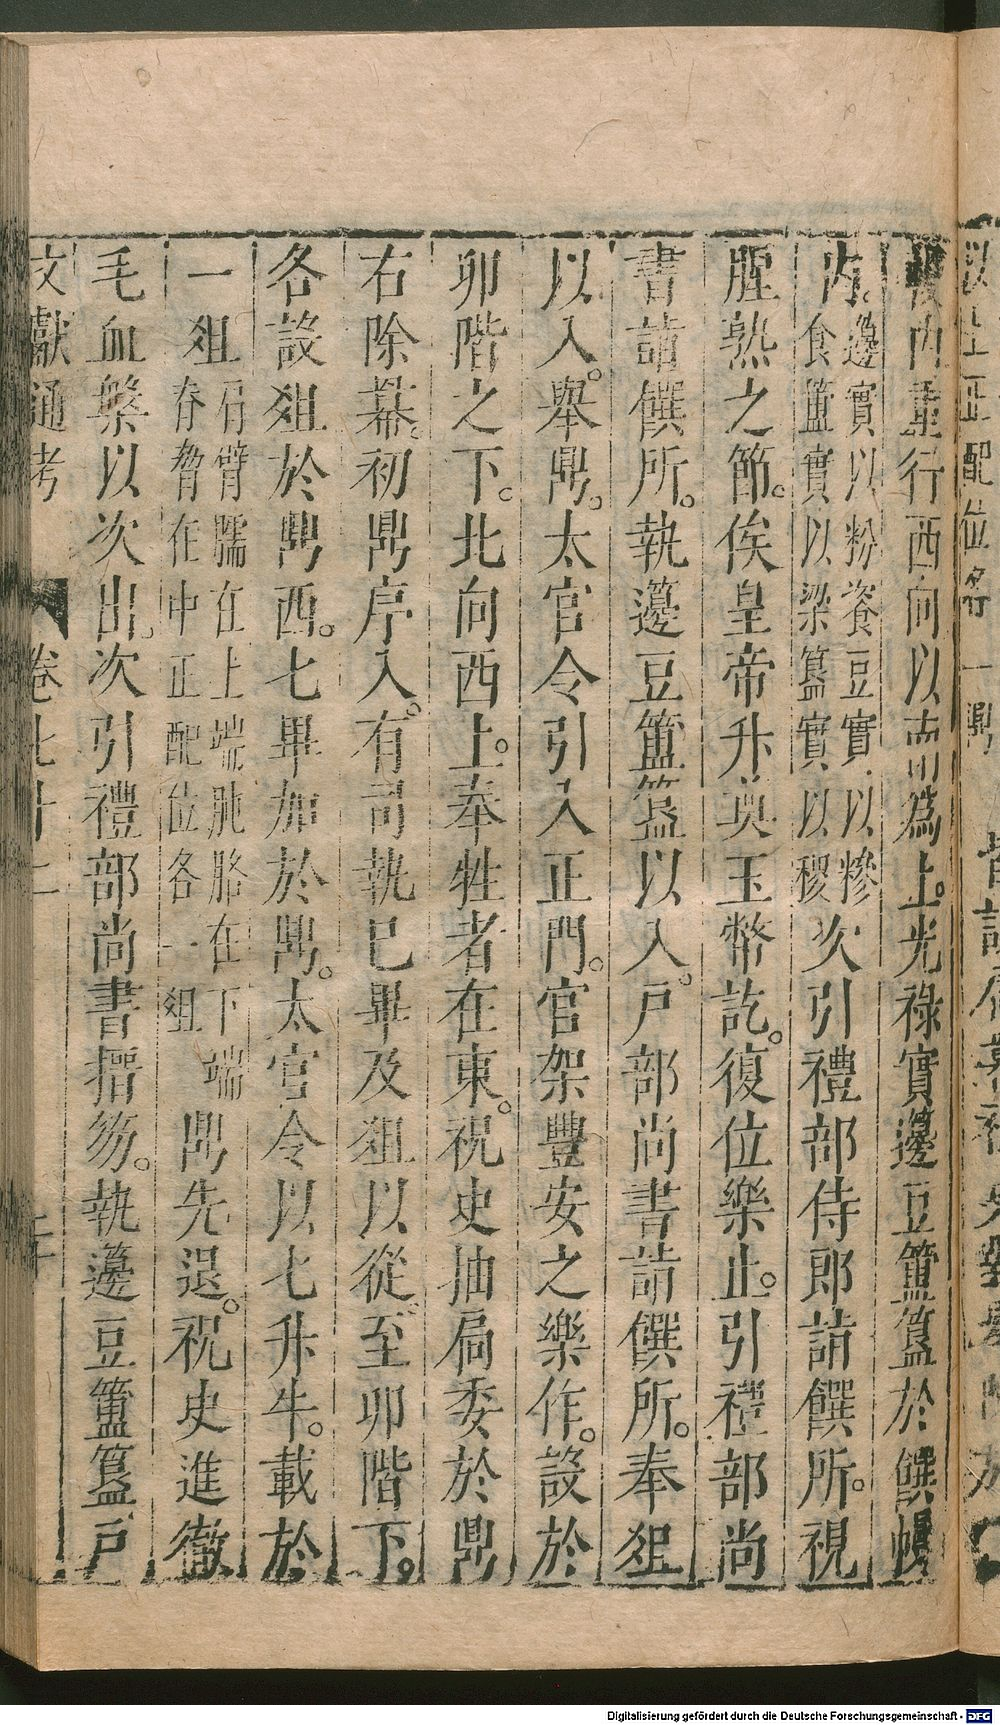 內重行西向以南爲上。光祿實籩豆簠簋於饌幔
內。籩實以粉餈豆實以糝食簠實以粱簋實以稷次引禮部侍郎詣饌所。視
腥熟之節。俟皇帝升奠玉幣訖。復位樂止。引禮部尚
書詣饌所。執籩豆簠簋以入。戶部尚書詣饌所。奉俎
以入。舉鼎。太官令引入正門。宮架豐安之樂作。設於
卯階之下。北向西上。奉牲者在東。祝史抽扃委於鼎
右除冪。初鼎序入。有司執匕畢及俎以從至卯階下。
各設俎於鼎西。匕畢加於鼎。太官令以匕升牛。載於
一俎肩臂臑在上端肫胳在下端脊脅在中正配位各一俎鼎先退。祝史進徹
毛血槃以次出。次引禮部尚書搢笏。執籩豆簠簋戶
文獻通考 卷七十二
Digitalisierung gefördert durch die Deutsche Forschungsgemeinschaft - DFG